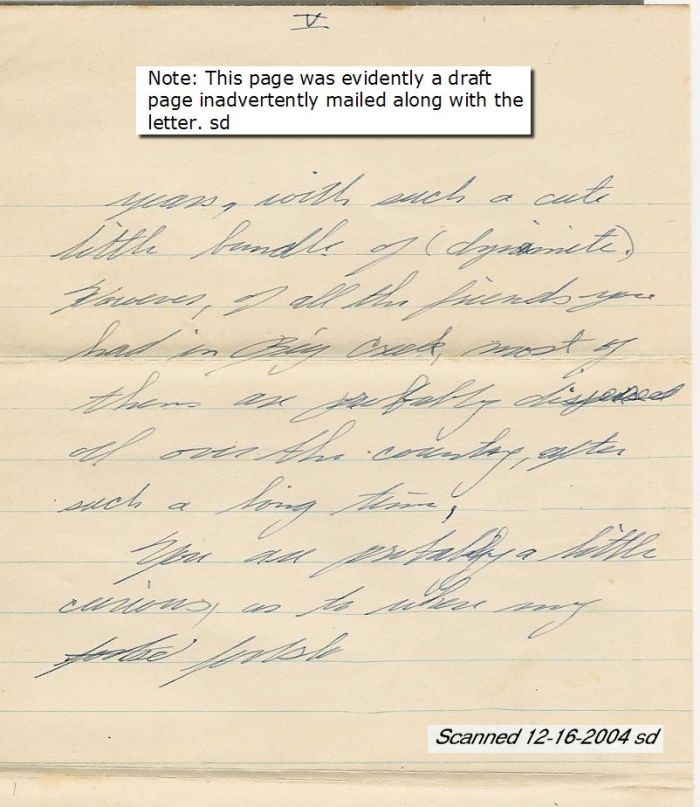 V
Note: This page was evidently a draft
page inadvertently mailed along with the
letter. sd
years, with such a cute
little bundle of (dynamite.)
However, of all the friends you
had in Big Creek, most of
them are probably dispersed
all over the country, after
such a long time,
You are probably a little
curious, as to where my
Scanned 12-16-2004 sd